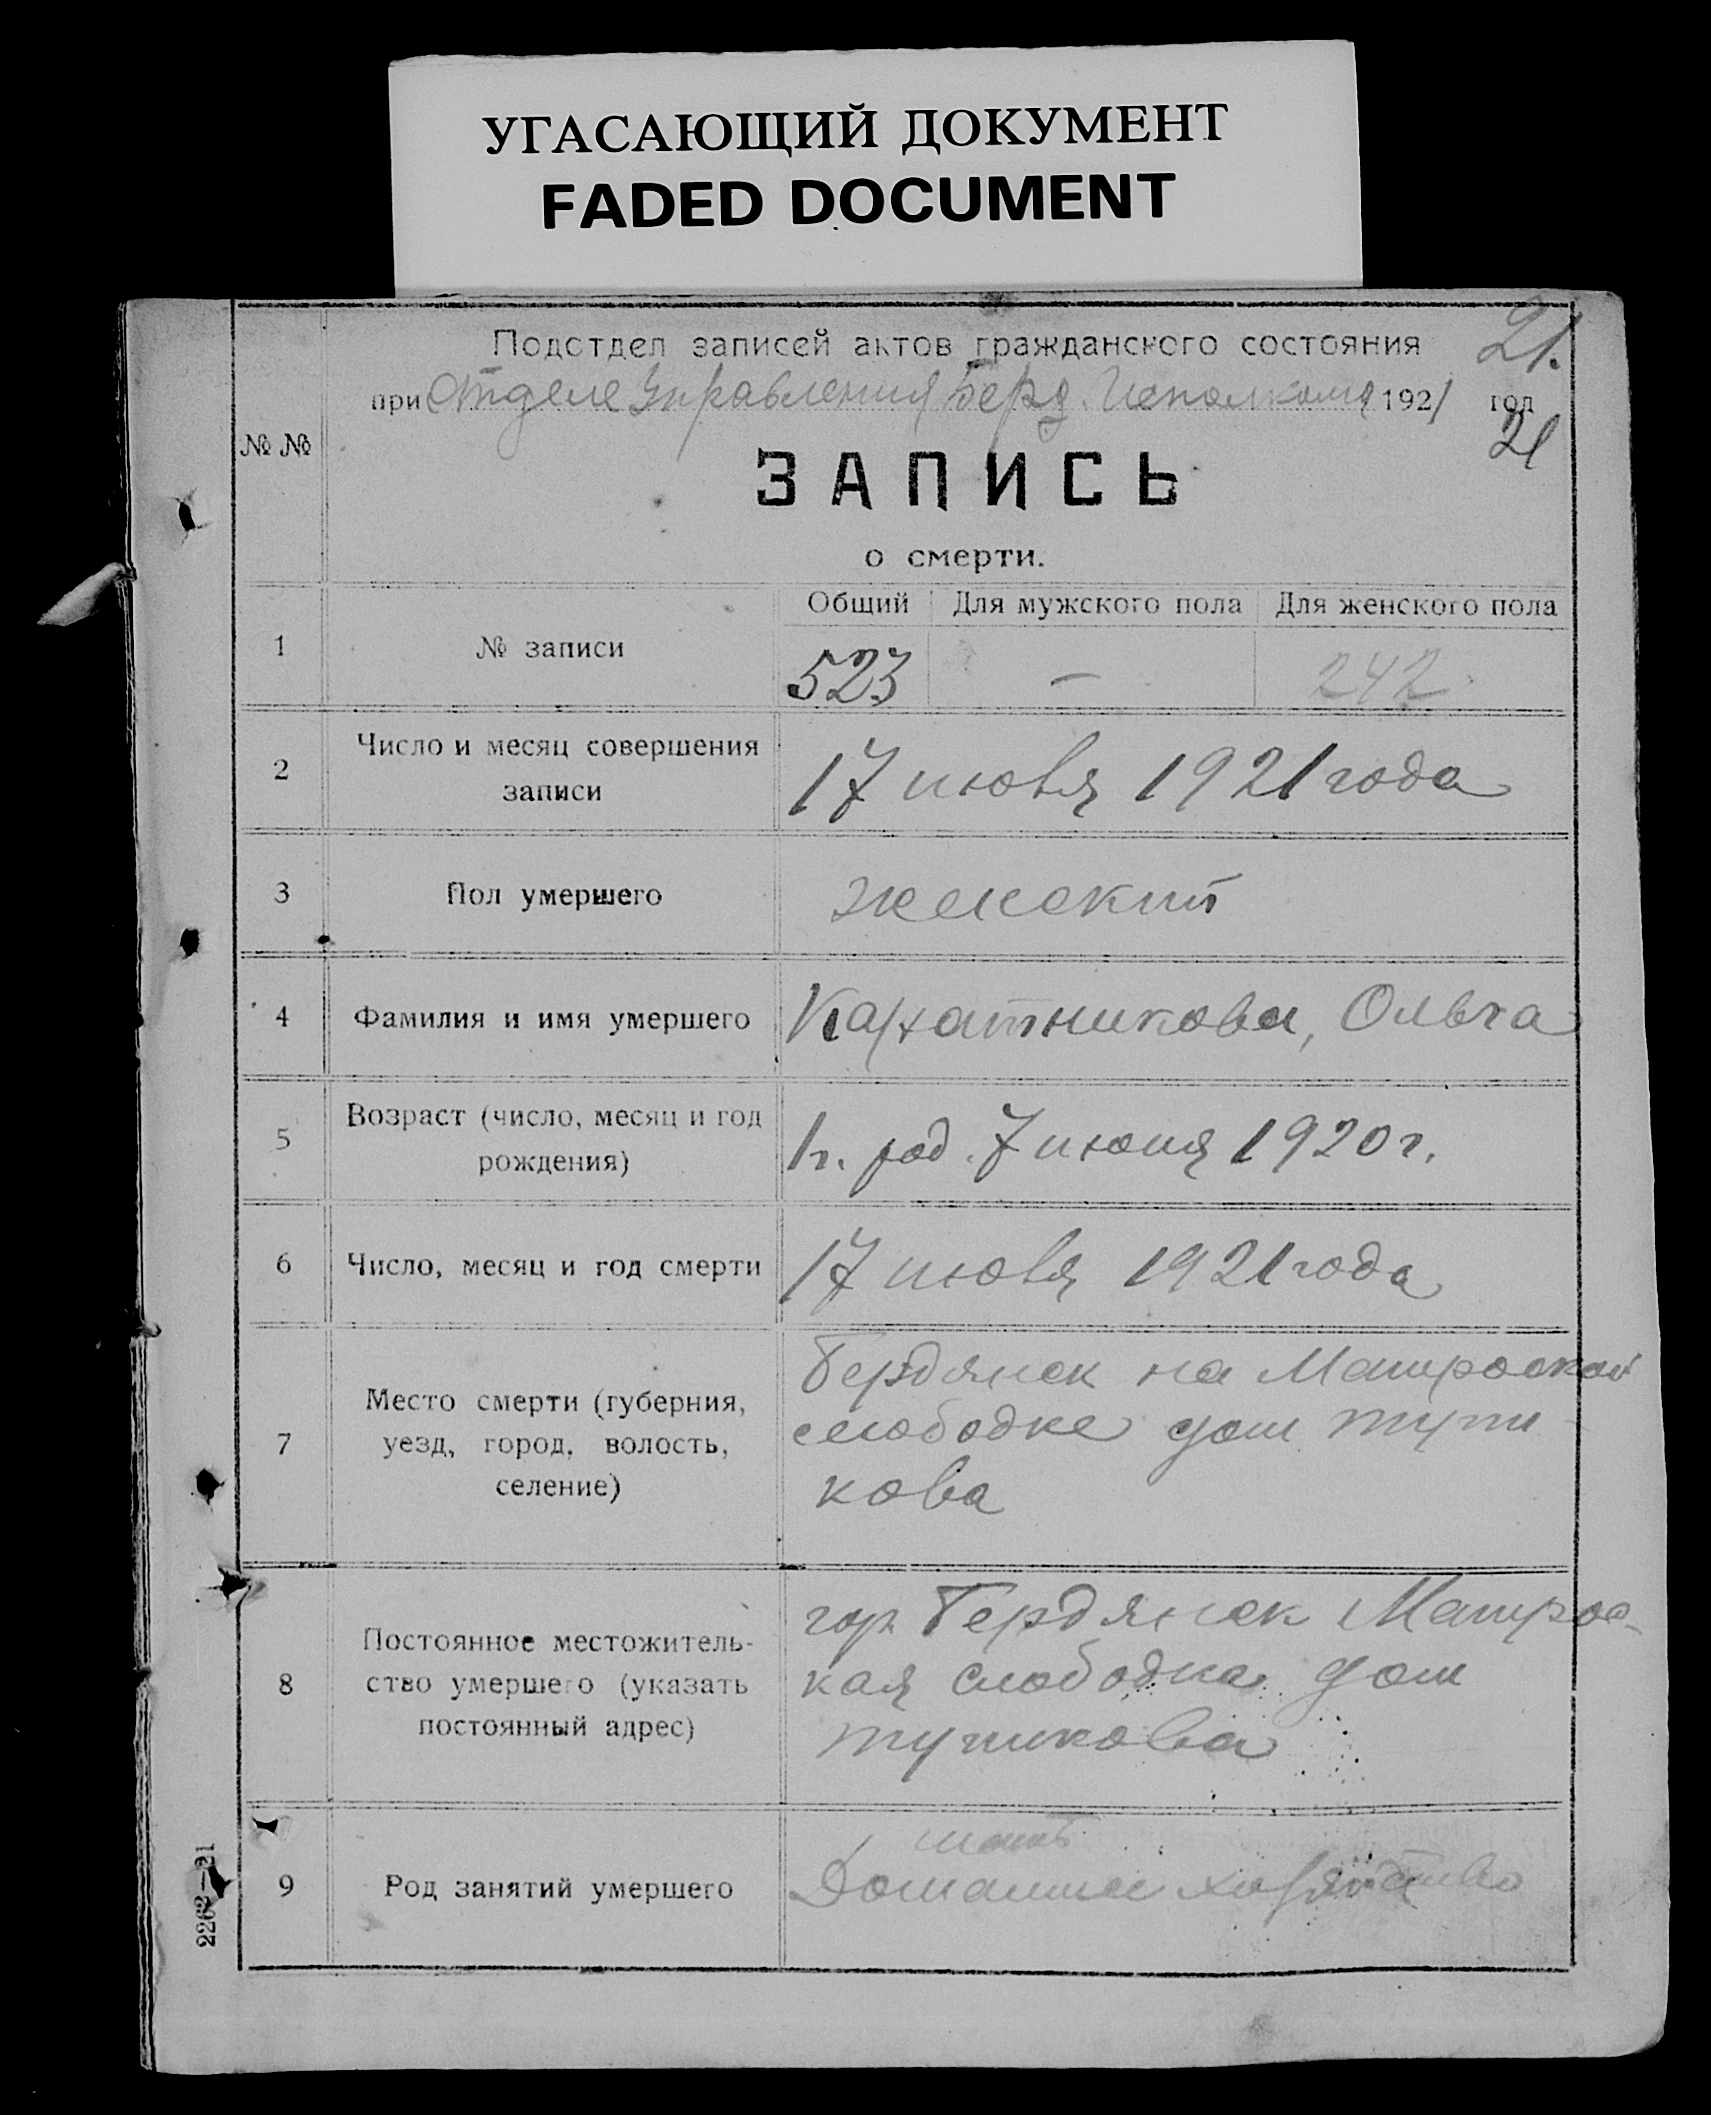 УГАСАЮЩИЙ ДОКУМЕНТ
FADED DOCUMENT
21.
Подотдел записей актов гражданского состояния
при Отделе Управления Берд. Исполкома 1921 год
21
№ №
ЗАПИСЬ
о смерти.
Общий Для мужского пола Для женского пола
1 № записи 523 — 242
2 Число и месяц совершения
записи
17 июля 1921 года
3 Пол умершего женский
4 Фамилия и имя умершего Ольга
5 Возраст (число, месяц и год
рождения)
1 г. род. 7 июня 1920 г.
6 Число, месяц и год смерти 17 июля 1921 года
7 Место смерти (губерния,
уезд, город, волость,
селение)
Бердянск на Матроской
слободке дом Тупи
кова
8 Постоянное местожитель-
ство умершего (указать
постоянный адрес)
гор. Бердянск Матрос-
кая слободка дом
Тупикова
9 Род занятий умершего
мать
Домашнее хозяйство
2262—21